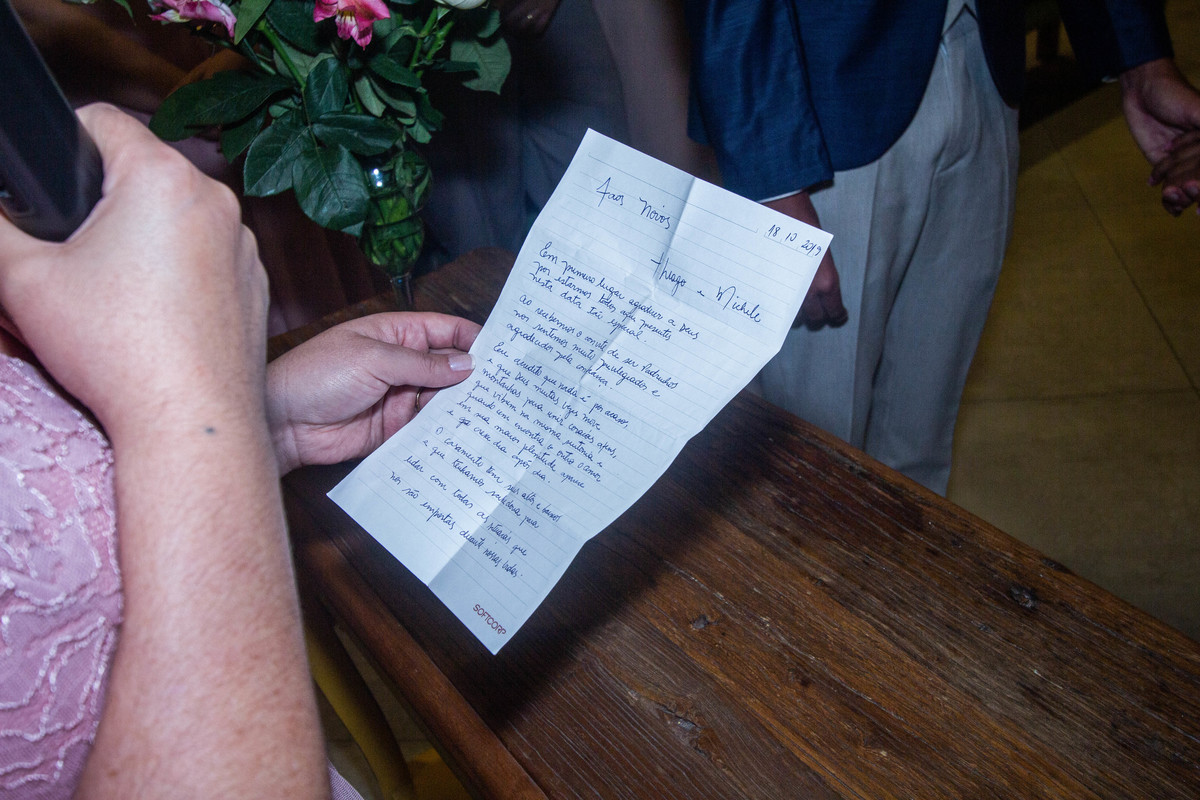 Aos Noivos
18 10 2019
Thiago e Michele
Em primeiro lugar agradecer a Deus
por estarmos todos aqui presentes
nesta data tão especial.
Ao recebermos o convite de ser Padrinhos
nos sentimos muito privilegiados e
agradecidos pela confiança.
Eu acredito que nada é por acaso,
e que Deus muitas vezes move
montanhas para unir corações afins,
que vibem na mesma sintonia e
quando um encontra o outro o amor
em sua maior plenitude
e cresce dia após dia.
O casamento tem seus altos e baixos
e que tenhamos sabedoria para
lidar com todas as que
nos são impostas durante nossas vidas.
SOFTCORP